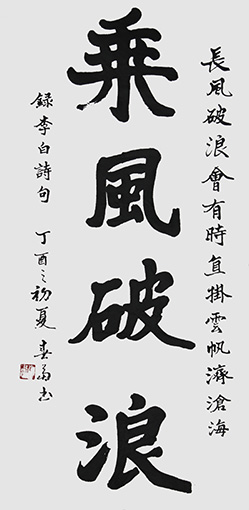 長風破浪會有時直掛雲帆濟滄海
乘風破浪
錄李白詩句 丁酉之初夏 书